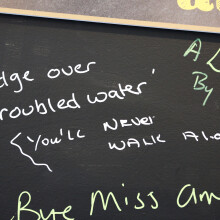 dge over
roubled water'
A L
By
You'll Never
Walk Alo
Bye Miss Am